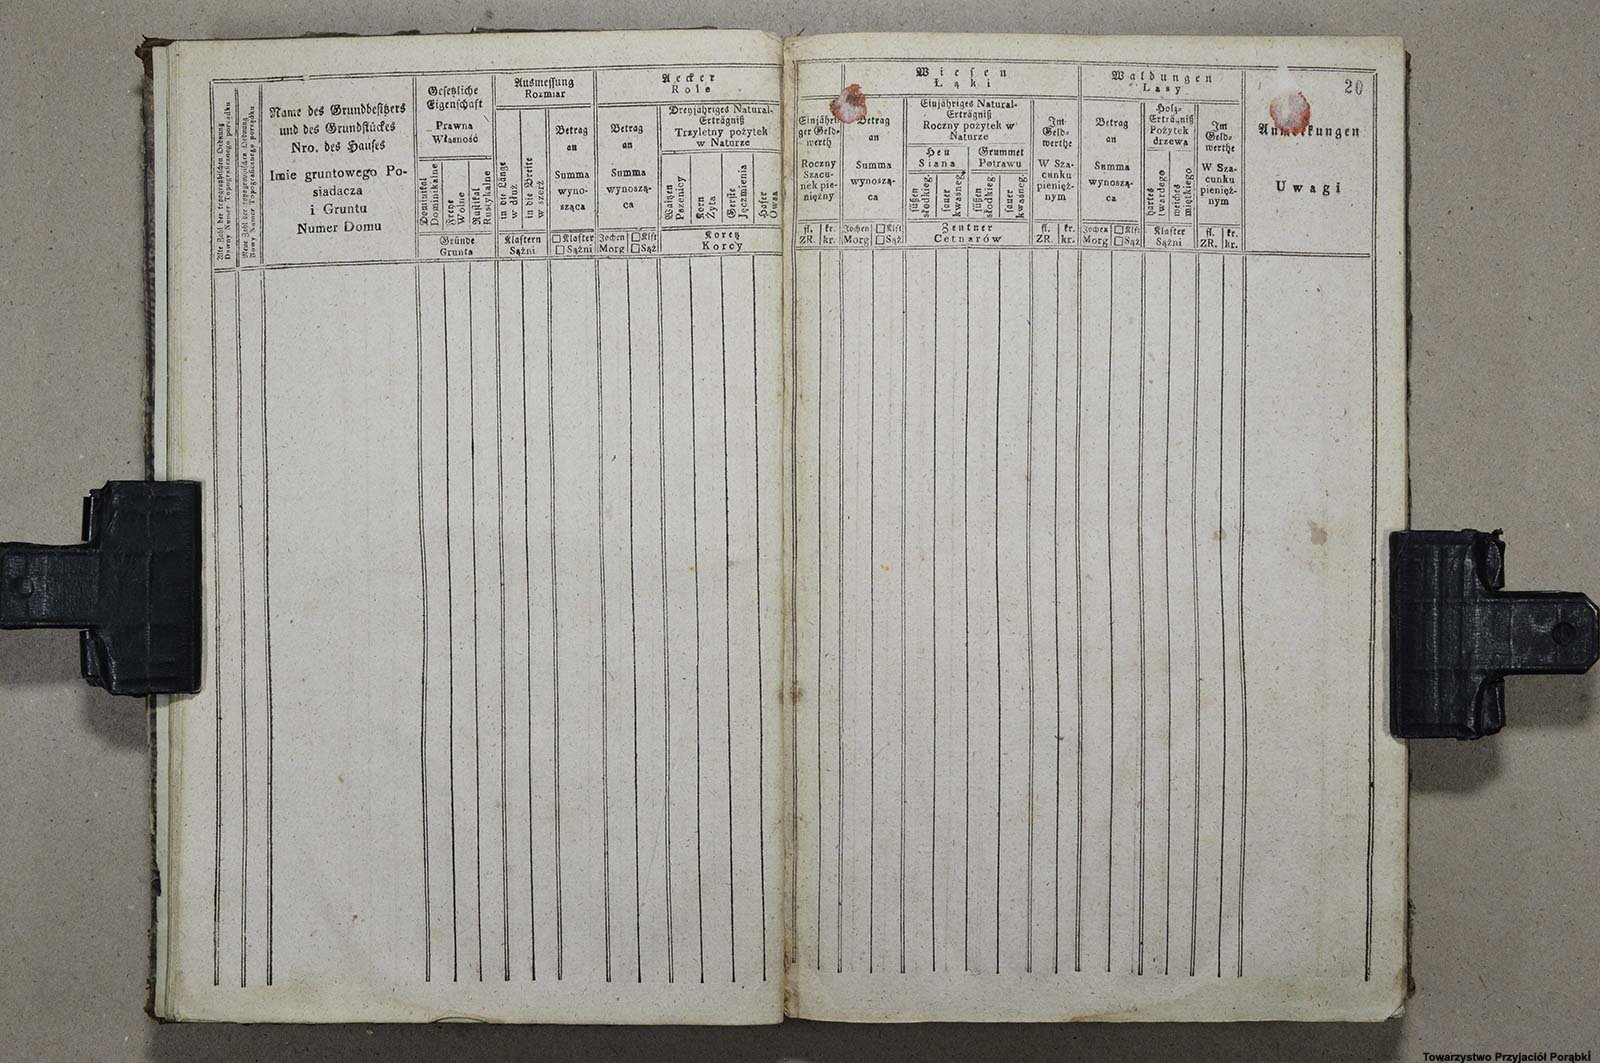 Alte Zahl der topographischen Ordnung
Dawny Numer Topograficznego porządku
Neue Zahl der topographischen Ordnung
Nowy Numer Topograficznego porządku
Name des Grundbesitzers
und des Grundstückes
Nro. des Hauses
Imie gruntowego Po-
siadacza
i Gruntu
Numer Domu
Gesetzliche
Eigenschaft
Prawna
Własność
Dominikal
Dominikalne
Freye
Wolne
Rustikal
Rustykalne
Gründe
Grunta
Ausmessung
Rozmiar
in die Länge
w dłuż
in die Breite
w szerż
Klaftern
Sążni
Betrag
an
Summa
wyno-
sząca
□ Klafter
□ Sążni
Aecker
Role
Betrag
an
Summa
wynoszą-
ca
Jochen
Morg
□ Klft
□ Sąż
Dreyjähriges Natural-
Erträgniß
Trzyletny pożytek
w Naturze
Waitzen
Pszenicy
Korn
Żyta
Gerste
Jęczmienia
Hafer
Owsa
Koretz
Korcy
Einjähri-
ger Geld-
werth
Roczny
Szacu-
nek pie-
niężny
fl. kr.
ZR. kr.
Wiesen
Łąki
Betrag
an
Summa
wynoszą-
ca
Jochen
Morg
□ Klft
□ Sąż
Einjähriges Natural-
Erträgniß
Roczny pożytek w
Naturze
Heu
Siana
Grummet
Potrawu
süßen
słodkieg.
sauer
kwaśneg.
süßen
słodkieg.
sauer
kwaśneg.
Zentner
Cetnarów
Im
Geld-
werthe
W Sza-
cunku
pienięż-
nym
fl. kr.
ZR. kr.
Waldungen
Lasy
Betrag
an
Summa
wynoszą-
ca
Jochen
Morg
□ Klft
□ Sąż
Holz-
Erträgniß
Pożytek
drzewa
hartes
twardego
weiches
miętkiego
Klafter
Sążni
Im
Geld-
werthe
W Sza-
cunku
pienięż-
nym
fl. kr.
ZR. kr.
20
Anmerkungen
Uwagi
Towarzystwo Przyjaciół Porąbki